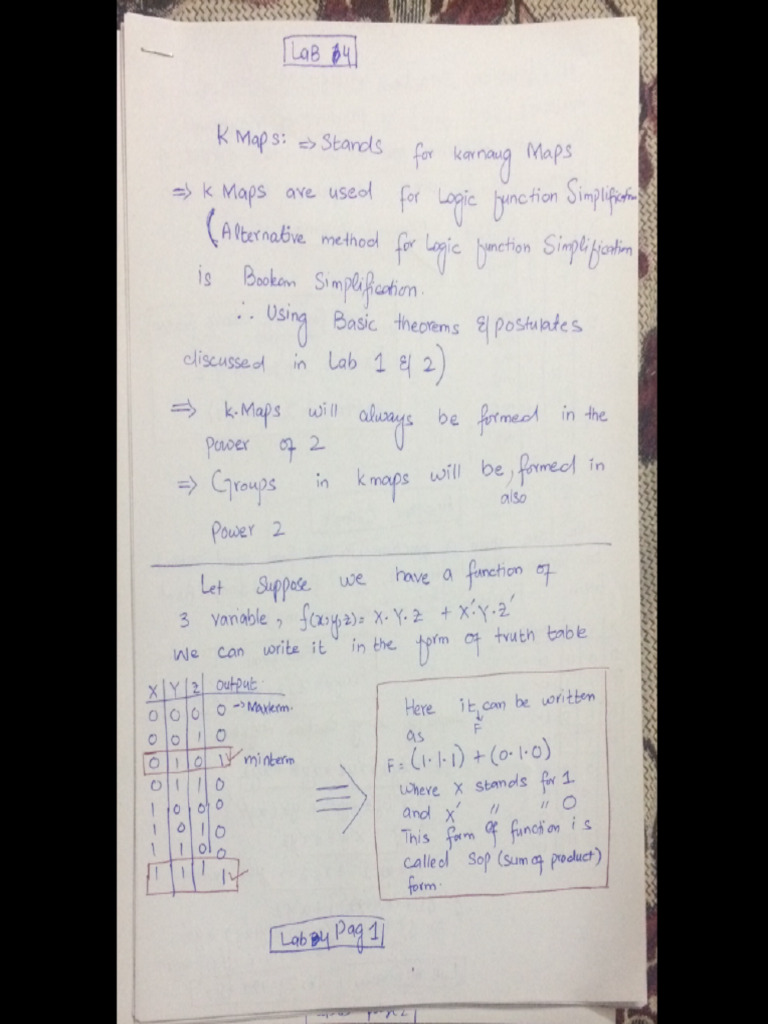 LAB 4
K Maps: ⇒ Stands for karnaug Maps
⇒ K Maps are used for Logic function Simplification
(Alternative method for Logic function Simplification
is Boolean Simplification.
∴ Using Basic theorems & postulates
discussed in Lab 1 & 2)
⇒ K.Maps will always be formed in the
Power of 2
⇒ Groups in kmaps will be, formed in
also
Power 2
Let Suppose we have a function of
3 variable, f(x,y,z) = X.Y.Z + X'.Y.Z'
We can write it in the form of truth table
X Y Z output
0 0 0 0 → Maxterm.
0 0 1 0
0 1 0 1 ✓ minterm
0 1 1 0
1 0 0 0
1 0 1 0
1 1 0 0
1 1 1 1 ✓
⇒
Here it can be written
F
as
F = (1.1.1) + (0.1.0)
where X stands for 1
and X' " " 0
This form of function is
called SOP (sum of product)
form.
Lab 4 Pag 1